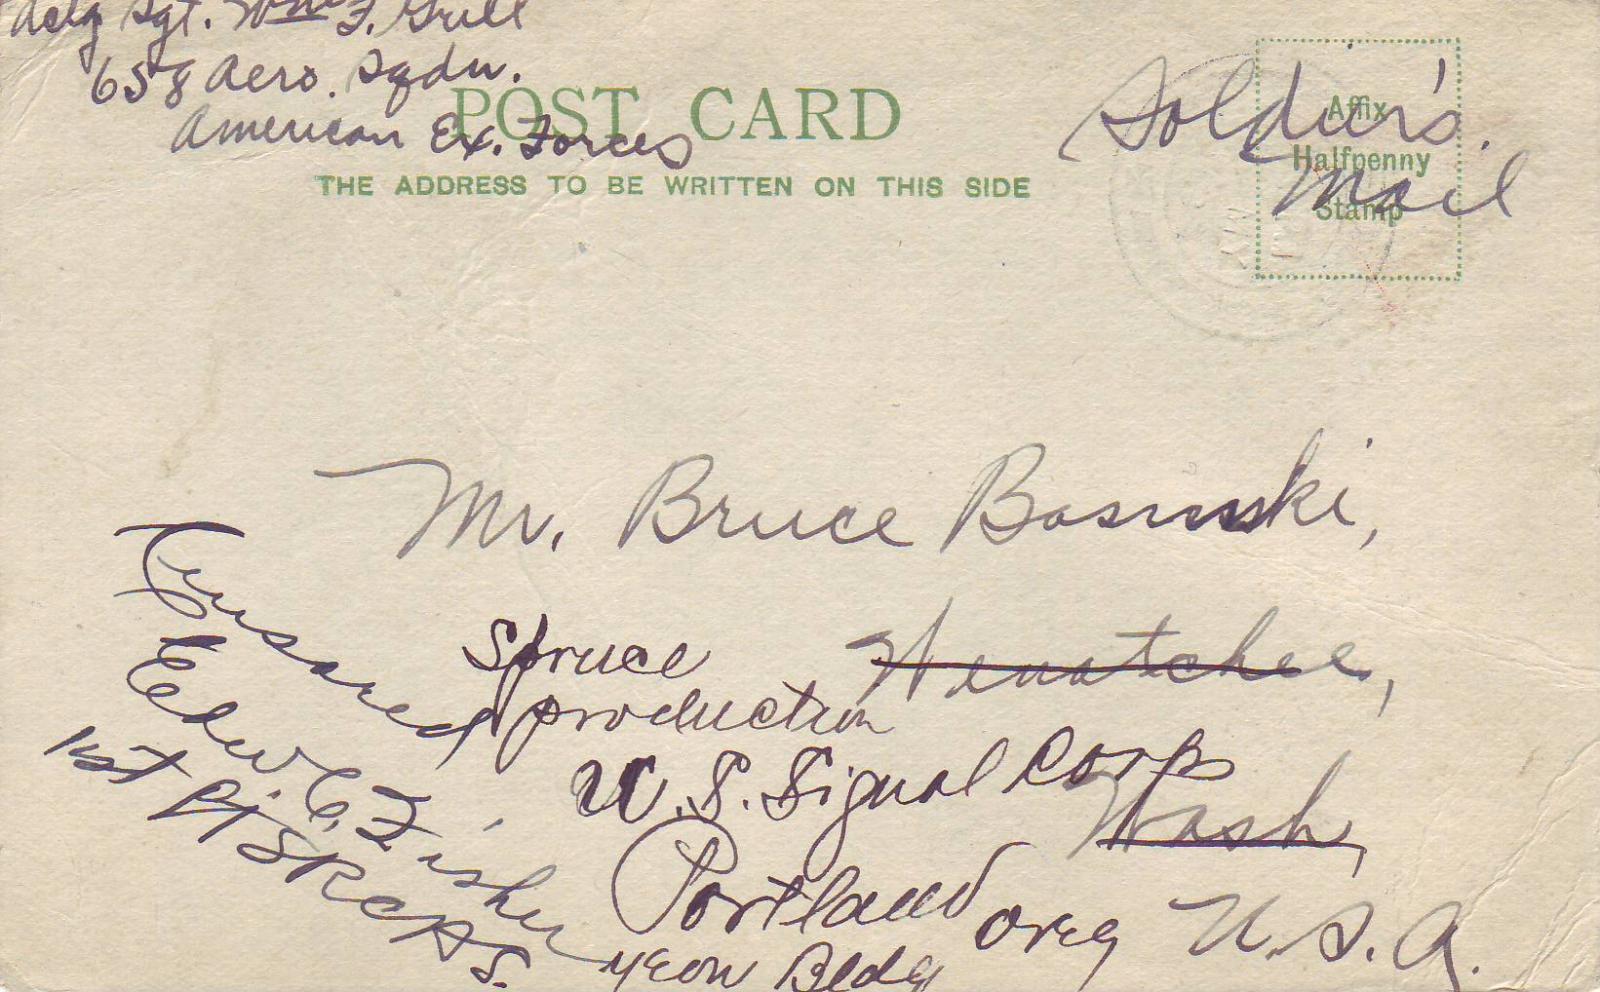 Actg Sgt. Wm F. Grill
658 Aero. Sqdn.
American Ex. Forces
POST CARD
THE ADDRESS TO BE WRITTEN ON THIS SIDE
Affix
Halfpenny
Stamp
Soldier's
Mail
Mr. Bruce Bosinski,
Wenatchee,
Wash,
U.S.A.
Spruce
production
U.S. Signal Corps
Portland Oreg
Yeon Bldg
Censored
Edw. C. Fisher
1st Lt